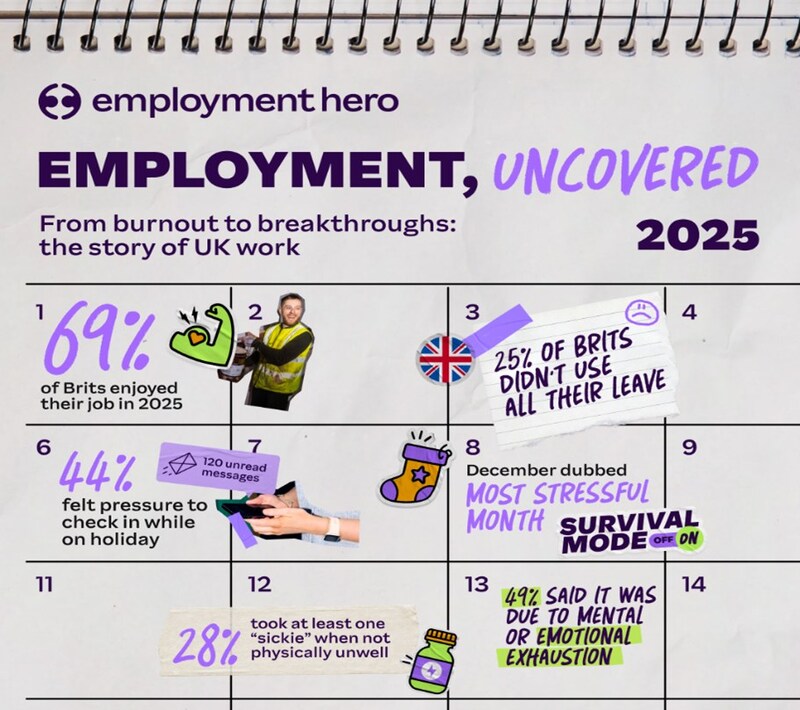 employment hero
EMPLOYMENT, UNCOVERED
From burnout to breakthroughs:
the story of UK work
2025
1
69%
of Brits enjoyed
their job in 2025
2
3
25% OF BRITS
DIDN'T USE
ALL THEIR LEAVE
4
6
44%
felt pressure to
check in while
on holiday
120 unread
messages
7
8
December dubbed
MOST STRESSFUL
MONTH
SURVIVAL
MODE OFF ON
9
11
12
28%
took at least one
“sickie” when not
physically unwell
13
49% SAID IT WAS
DUE TO MENTAL
OR EMOTIONAL
EXHAUSTION
14